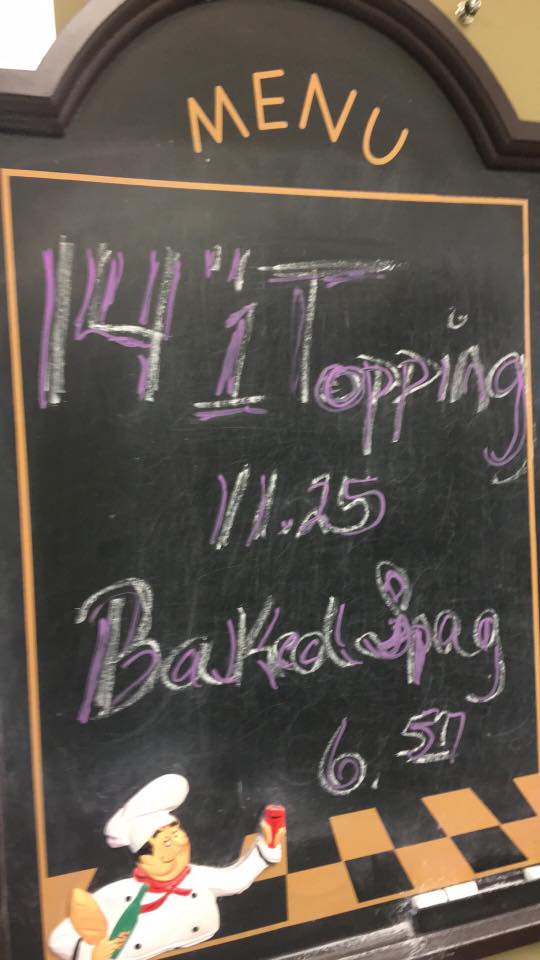 MENU
14" 1 Topping
11.25
Baked Spag
6.57